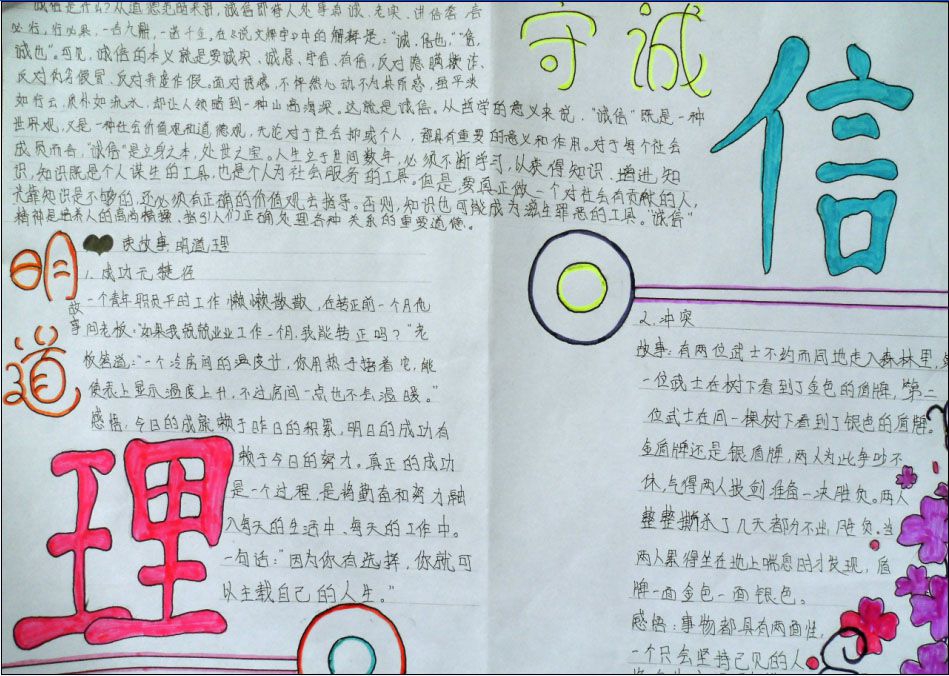 诚信是什么？从道德范畴来讲，诚信即待人处事真诚、老实、讲信誉，言
必行，行必果，一言九鼎，一诺千金。在《说文解字》中的解释是："诚，信也"，"信，
诚也"。可见，诚信的本义就是要诚实、诚恳、守信、有信，反对隐瞒欺诈、
反对伪劣假冒、反对弄虚作假。面对诱惑，不怦然心动，不为其所惑，虽平淡
如行云，质朴如流水，却让人领略到一种山高海深。这就是诚信。从哲学的意义来说，"诚信"既是一种
世界观，又是一种社会价值观和道德观，无论对于社会抑或个人，都具有重要的意义和作用。对于每个社会
成员而言，"诚信"是立身之本，处世之宝。人生立于世间数年，必须不断学习，以获得知识、增进知
识，知识既是个人谋生的工具，也是个人为社会服务的工具。但是，要真正做一个对社会有贡献的人，
光靠知识是不够的，还必须有正确的价值观去指导。否则，知识也可能成为滋生罪恶的工具。"诚信"
精神是培养人的高尚情操、指引人们正确处理各种关系的重要道德。
守 诚
信
明
道
理
读故事 明道理
1. 成功无捷径
故事
一个青年职员平时工作懒懒散散，在转正前一个月他
问老板："如果我兢兢业业工作一个月，我能转正吗？"老
板答道："一个冷房间的温度计，你用热手捂着它，能
使表上显示温度上升，不过房间一点也不会温暖。"
感悟：今日的成就赖于昨日的积累，明日的成功有
赖于今日的努力。真正的成功
是一个过程，是将勤奋和努力融
入每天的生活中、每天的工作中。
一句话："因为你有选择，你就可
以主载自己的人生。"
2. 冲突
故事：有两位武士不约而同地走入森林里，
一位武士在树下看到了金色的盾牌，第二
位武士在同一棵树下看到了银色的盾牌。
金盾牌还是银盾牌，两人为此争吵不
休，气得两人拔剑准备一决胜负。两人
整整撕杀了几天都分不出胜负。当
两人累得坐在地上喘息时才发现，盾
牌一面金色一面银色。
感悟：事物都具有两面性，
一个只会坚持己见的人